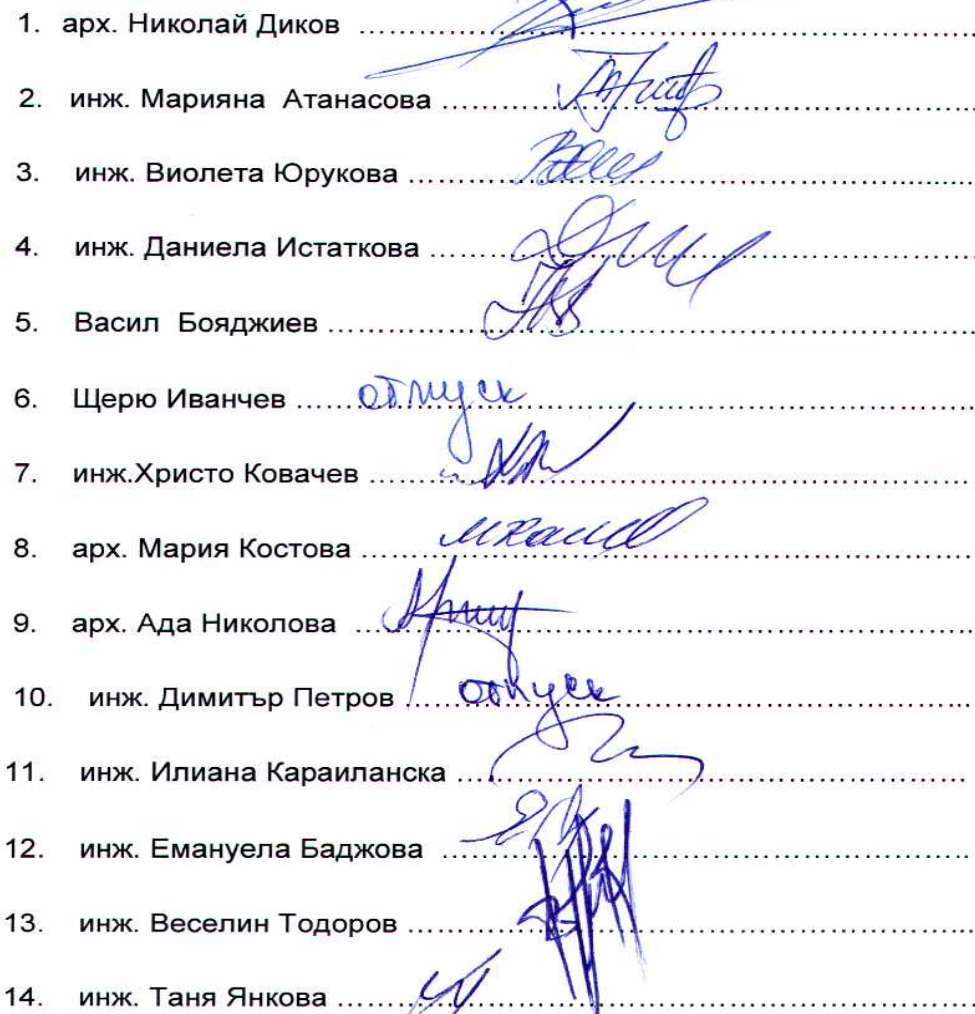 1. арх. Николай Диков ........................
2. инж. Марияна Атанасова ........................
3. инж. Виолета Юрукова ........................
4. инж. Даниела Истаткова ........................
5. Васил Бояджиев ........................
6. Щерю Иванчев ...... отпуск ........................
7. инж.Христо Ковачев ........................
8. арх. Мария Костова ........................
9. арх. Ада Николова ........................
10. инж. Димитър Петров ...... отпуск ........................
11. инж. Илиана Караиланска ........................
12. инж. Емануела Баджова ........................
13. инж. Веселин Тодоров ........................
14. инж. Таня Янкова ........................